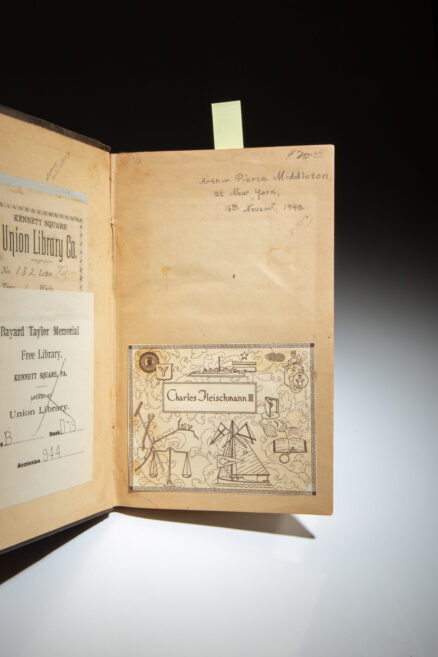 KENNETT SQUARE
Union Library Co.
No. 132 Letter
Bayard Taylor Memorial
Free Library,
KENNETT SQUARE, PA.
Union Library.
B
Book D79
Accession 944
Arthur Pierce Middleton,
at New York,
16th Novem., 1940.
Y
Charles Fleischmann III